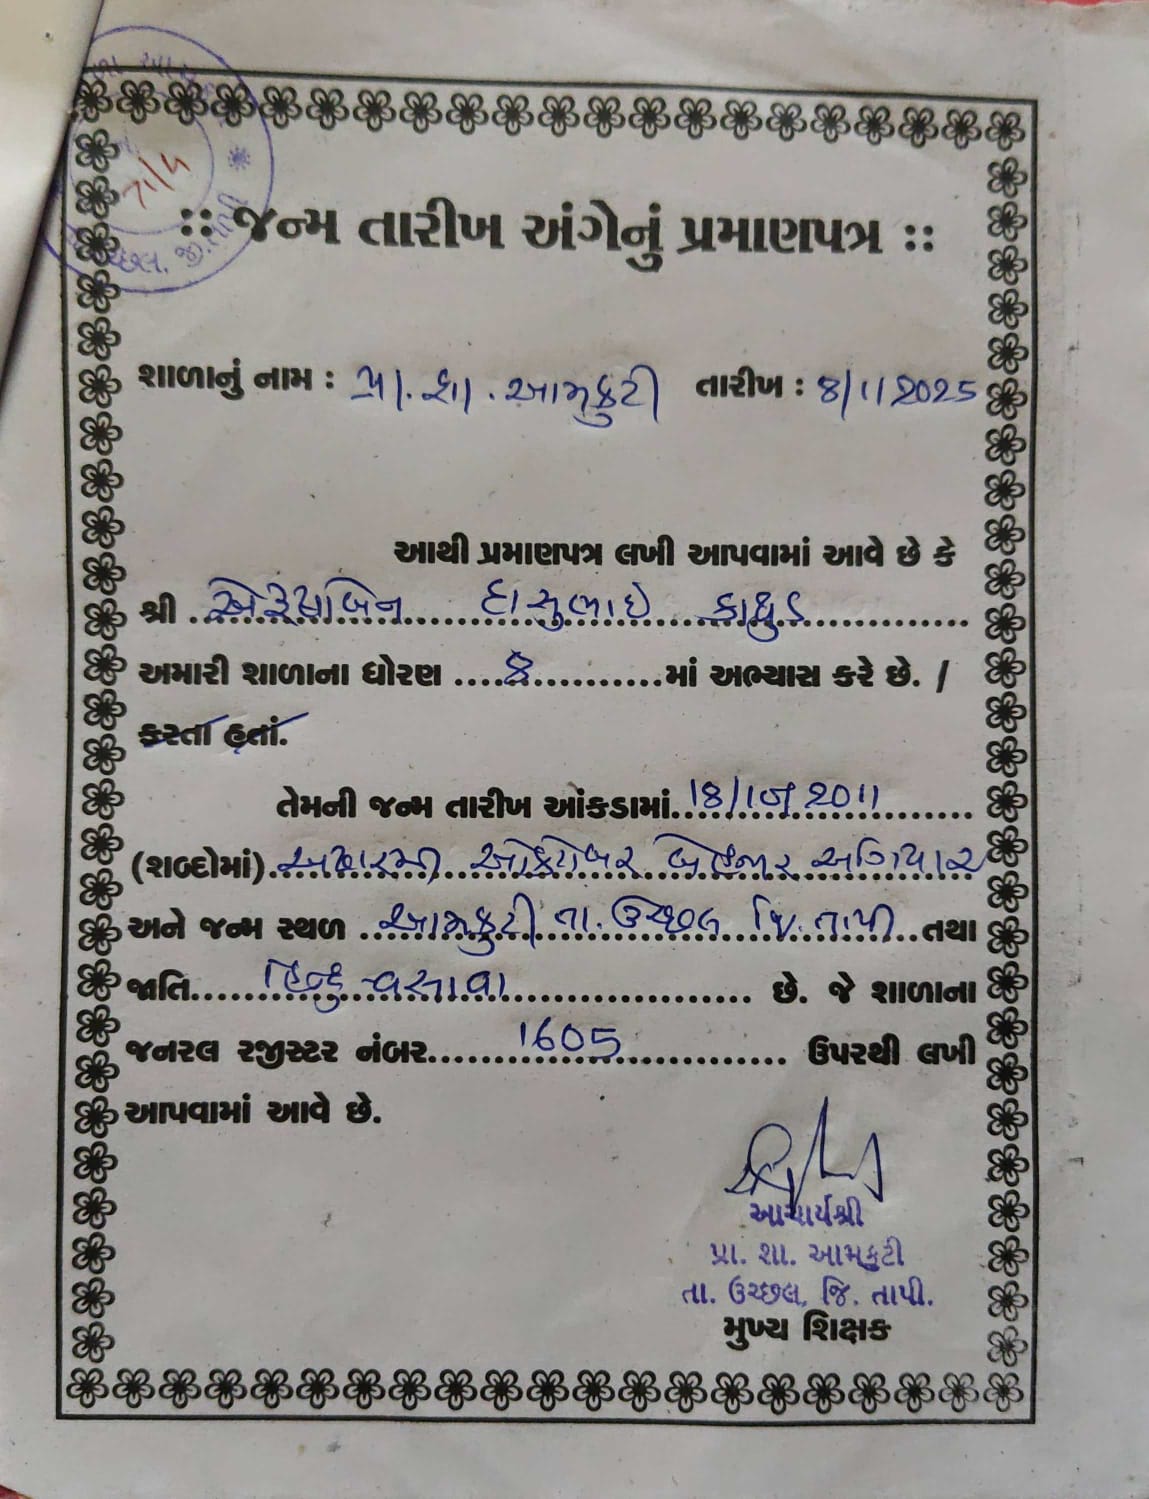 :: જન્મ તારીખ અંગેનું પ્રમાણપત્ર ::
શાળાનું નામ : પ્રા. શા. આમકુટી તારીખ : 8/1/2025
આથી પ્રમાણપત્ર લખી આપવામાં આવે છે કે
શ્રી
અમારી શાળાના ધોરણ ....8..........માં અભ્યાસ કરે છે. /
કરતા હતાં.
તેમની જન્મ તારીખ આંકડામાં
(શબ્દોમાં) ઓક્ટોબર બેહજાર અગિયાર
અને જન્મ સ્થળ આમકુટી તા. ઉચ્છલ જિ. તાપી તથા
જાતિ હિન્દુ-વસાવા છે. જે શાળાના
જનરલ રજીસ્ટર નંબર 1605 ઉપરથી લખી
આપવામાં આવે છે.
આચાર્યશ્રી
પ્રા. શા. આમકુટી
તા. ઉચ્છલ, જિ. તાપી.
મુખ્ય શિક્ષક